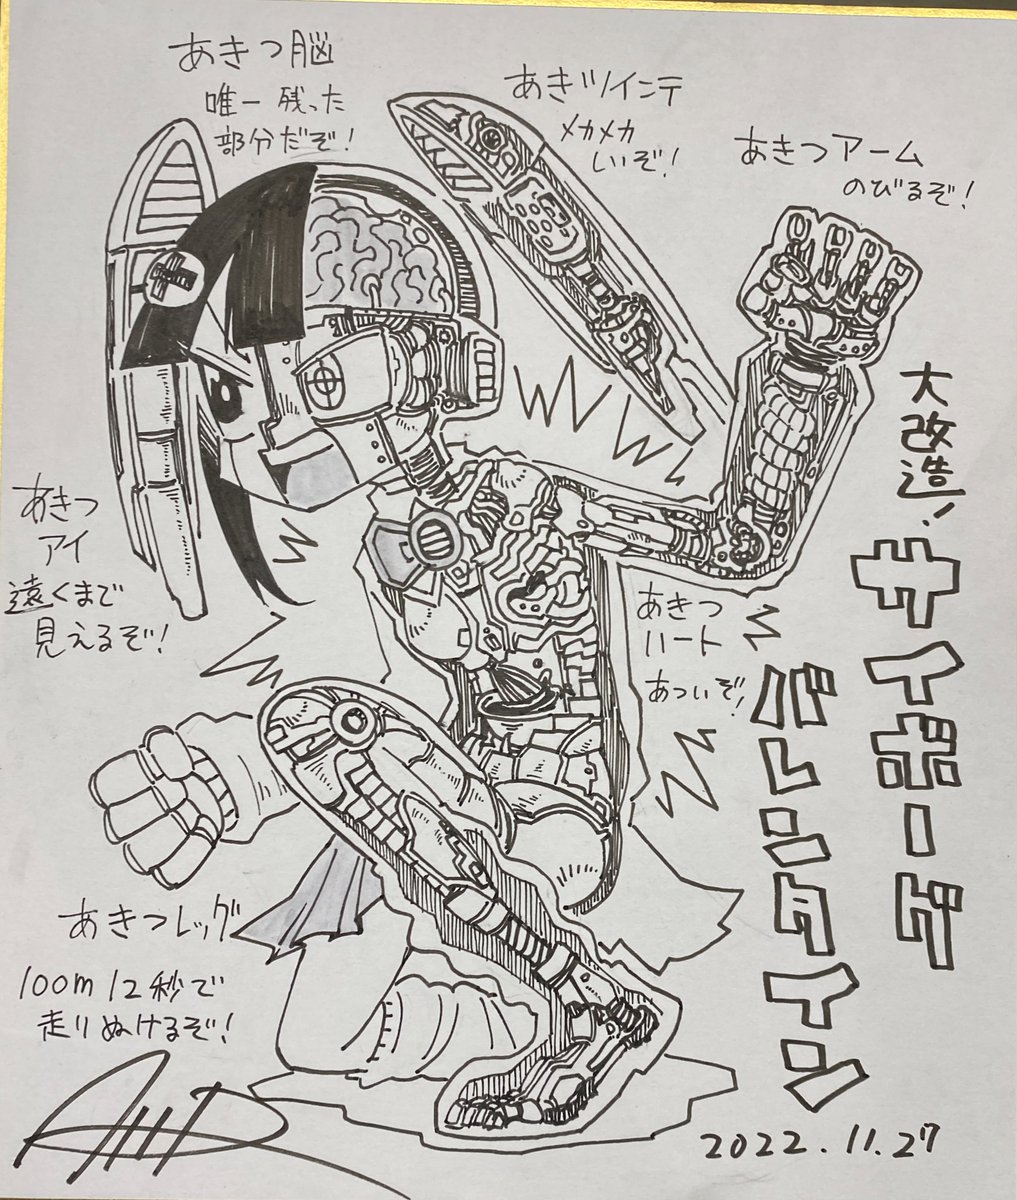 あきつ脳
唯一残った
部分だぞ!
あきツインテ
メカメカ
しいぞ!
あきつアーム
のびるぞ!
大改造!
サイボーグ
バレンタイン
あきつ
アイ
遠くまで
見えるぞ!
あきつ
ハート
あついぞ!
あきつレッグ
100m 12秒で
走りぬけるぞ!
2022.11.27